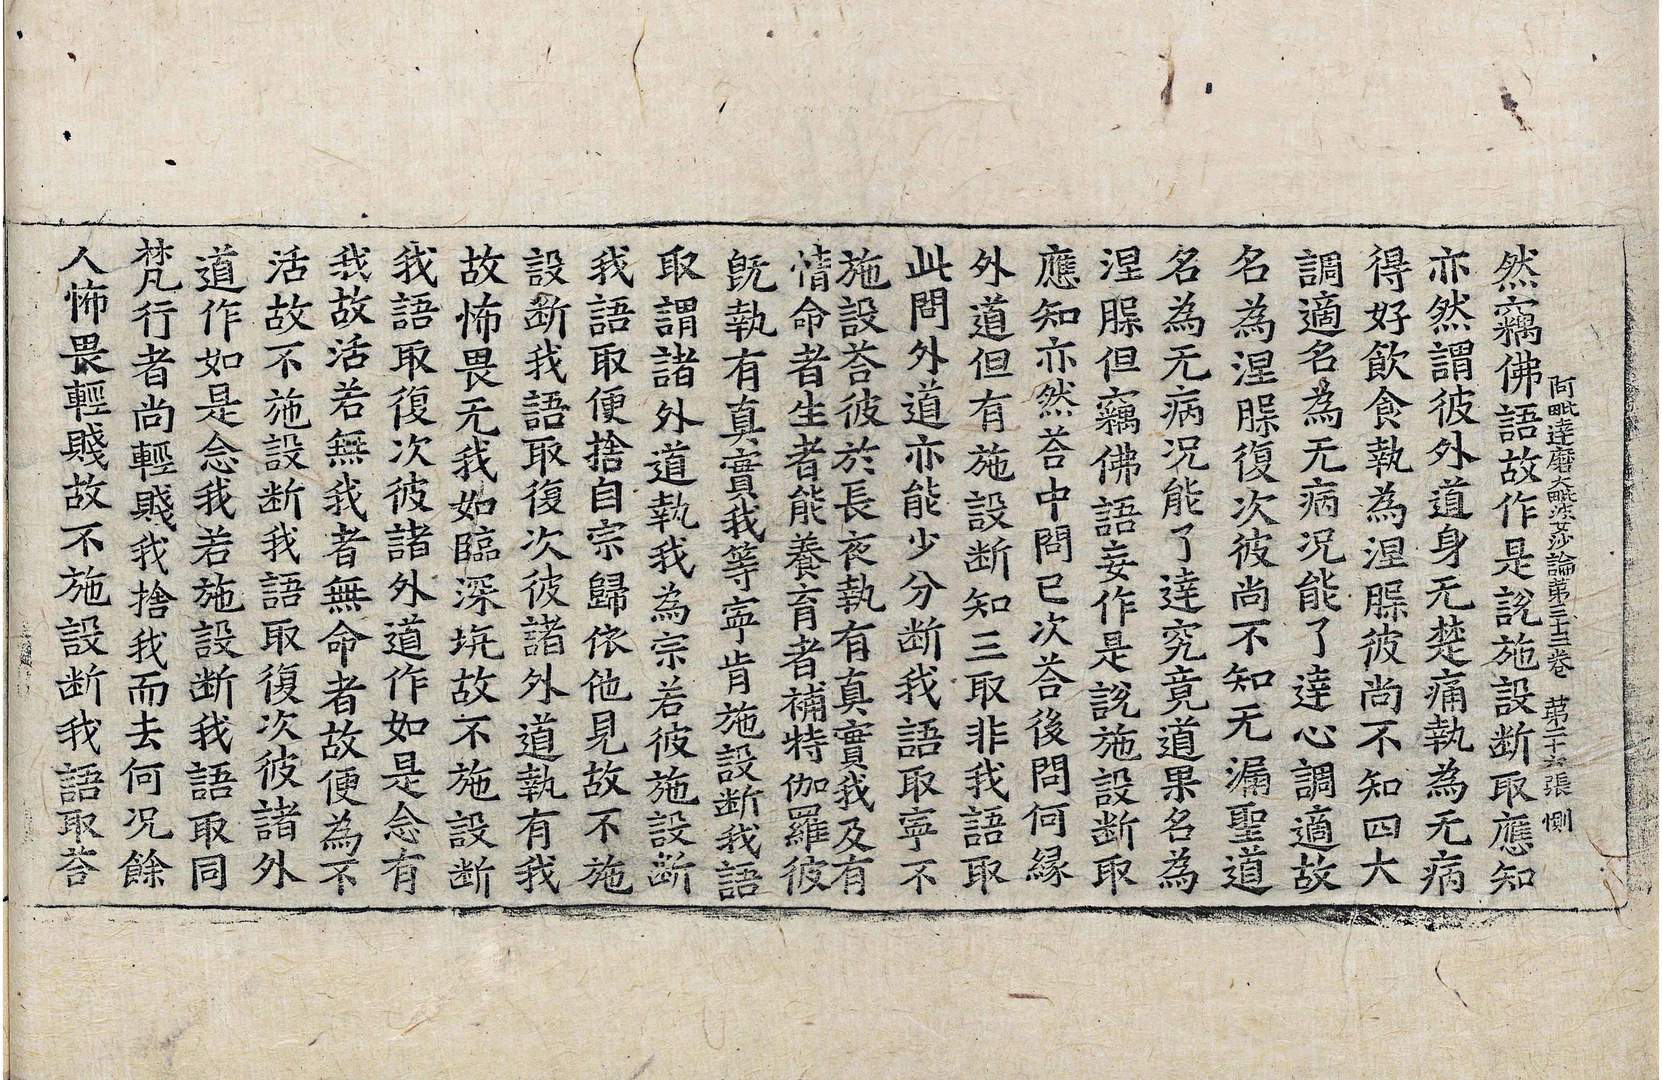 阿毗達磨大毗婆沙論第三十三卷 第二十六張 惻
然竊佛語故作是說施設断取應知
亦然謂彼外道身无楚痛執為无病
得好飲食執為涅槃彼尚不知四大
調適名為无病况能了達心調適故
名為涅槃復次彼尚不知无漏聖道
名為无病况能了達究竟道果名為
涅槃但竊佛語妄作是說施設断取
應知亦然荅中問已次荅後問何縁
外道但有施設断知三取非我語取
此問外道亦能少分断我語取寧不
施設荅彼於長夜執有真實我及有
情命者生者能養育者補特伽羅彼
旣執有真實我等寧肯施設断我語
取謂諸外道執我為宗若彼施設断
我語取便捨自宗歸依他見故不施
設断我語取復次彼諸外道執有我
故怖畏无我如臨深坑故不施設断
我語取復次彼諸外道作如是念有
我故活若無我者無命者故便為不
活故不施設断我語取復次彼諸外
道作如是念我若施設断我語取同
梵行者尚輕賤我捨我而去何况餘
人怖畏輕賤故不施設断我語取荅